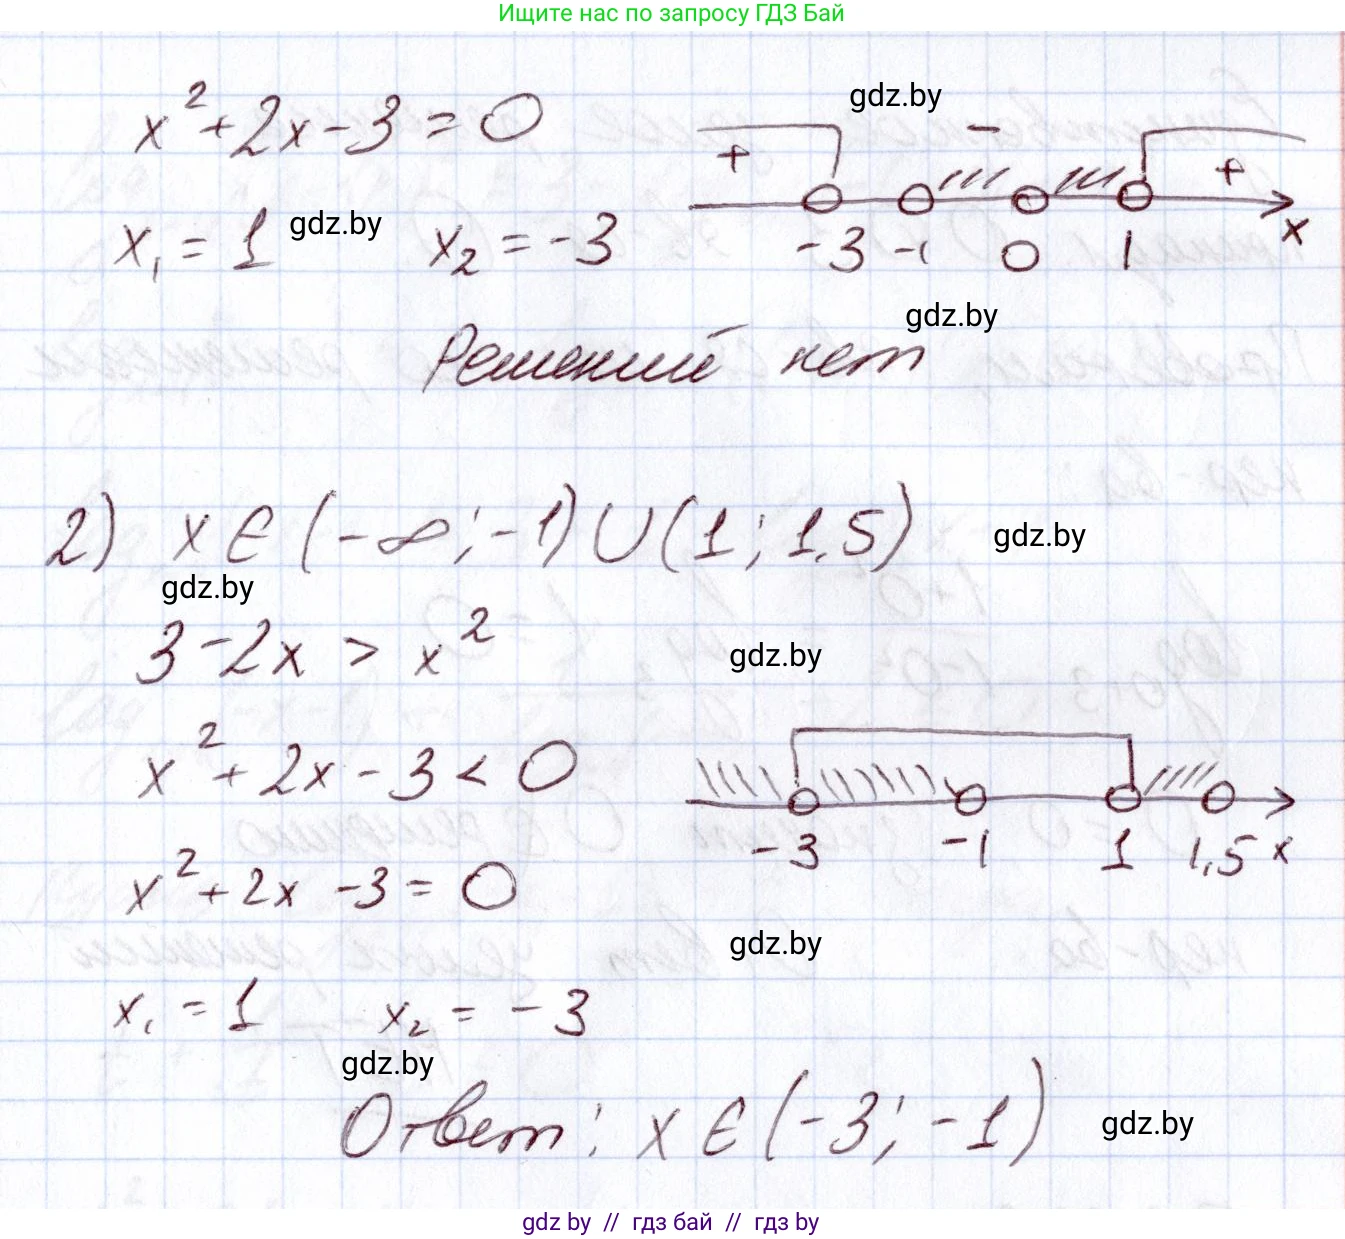 Ищите нас по запросу ГДЗ Бай
x² + 2x - 3 = 0
gdz.by
+ - +
x₁ = 1 gdz.by x₂ = -3
-3 -1 0 1 x
gdz.by
Решений нет
2) x ∈ (-∞; -1) ∪ (1; 1,5)
gdz.by
gdz.by
3 - 2x > x²
gdz.by
x² + 2x - 3 < 0
-3 -1 1 1,5 x
x² + 2x - 3 = 0
gdz.by
x₁ = 1 x₂ = -3
gdz.by
Ответ: x ∈ (-3; -1)
gdz.by
gdz by // гдз бай // гдз by